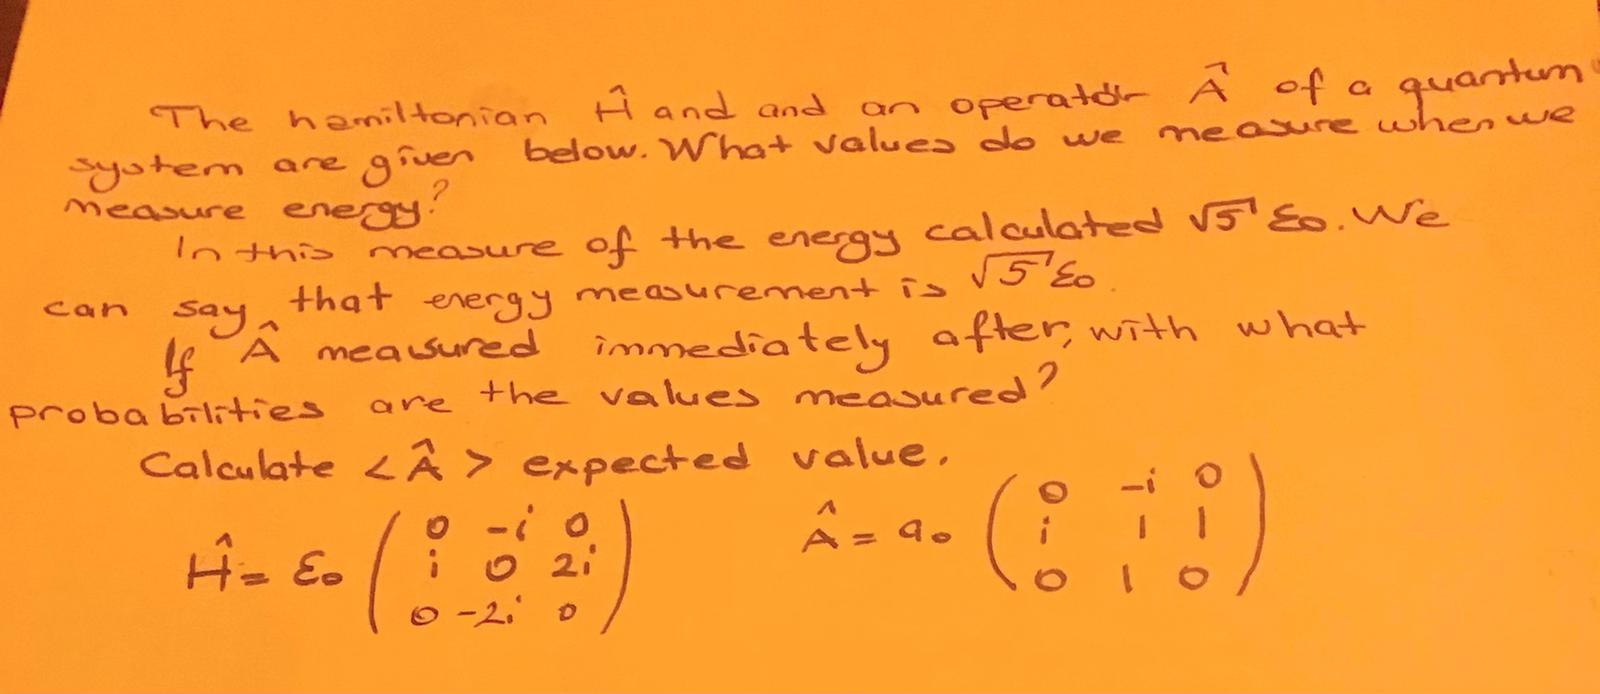 The hamiltonian Ĥ and and an operator Â of a quantum
system are given below. What values do we measure when we
measure energy?
In this measure of the energy calculated √5 ε₀. We
can say that energy measurement is √5 ε₀.
If Â measured immediately after, with what
probabilities are the values measured?
Calculate <Â> expected value.
Ĥ = ε₀ ( 0 -i 0
i 0 2i
0 -2i 0 )
Â = a₀ ( 0 -i 0
i 1 1
0 1 0 )